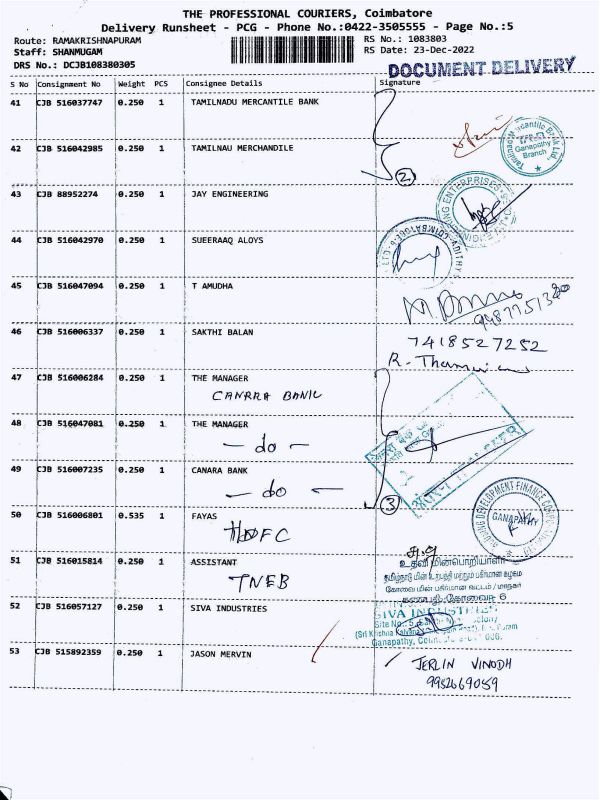 THE PROFESSIONAL COURIERS, Coimbatore
Delivery Runsheet - PCG - Phone No.:0422-3505555 - Page No.:5
Route: RAMAKRISHNAPURAM
RS No.: 1083803
Staff: SHANMUGAM
RS Date: 23-Dec-2022
DRS No.: DCJB108380305
DOCUMENT DELIVERY
S No Consignment No Weight PCS Consignee Details Signature
41 CJB 516037747 0.250 1 TAMILNADU MERCANTILE BANK
42 CJB 516042985 0.250 1 TAMILNAU MERCHANDILE
Ganapathy
Branch
2
43 CJB 88952274 0.250 1 JAY ENGINEERING
44 CJB 516042970 0.250 1 SUEERAAQ ALOYS
45 CJB 516047094 0.250 1 T AMUDHA
46 CJB 516006337 0.250 1 SAKTHI BALAN
7418527252
47 CJB 516006284 0.250 1 THE MANAGER
CANARA BANK
48 CJB 516047081 0.250 1 THE MANAGER
- do -
49 CJB 516007235 0.250 1 CANARA BANK
- do -
3
50 CJB 516006801 0.535 1 FAYAS
HDFC
GANAPATHY
51 CJB 516015814 0.250 1 ASSISTANT
TNEB
உதவி மின்பொறியாளர்
52 CJB 516057127 0.250 1 SIVA INDUSTRIES
SIVA INDUSTRIES
53 CJB 515892359 0.250 1 JASON MERVIN
JERLIN VINODH
9952669059